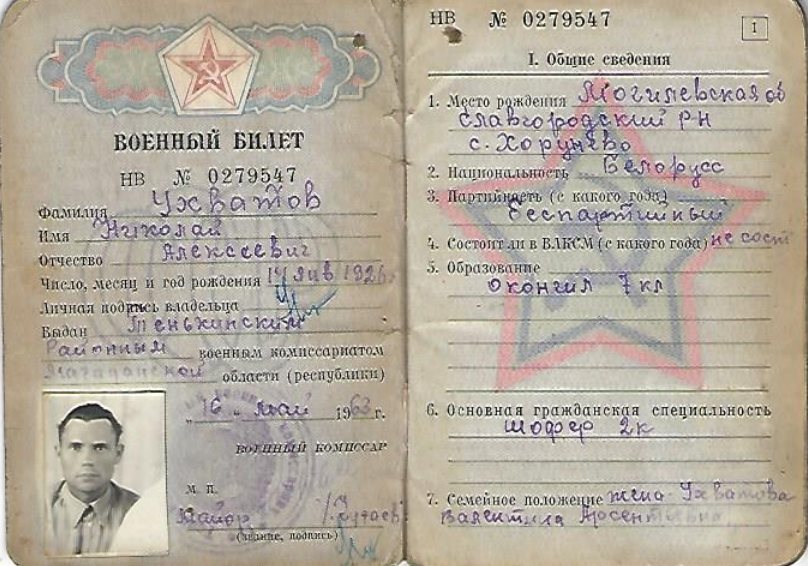 ВОЕННЫЙ БИЛЕТ
НВ № 0279547
Фамилия Ухватов
Имя Николай
Отчество Алексеевич
Число, месяц и год рождения 14 янв 1926
Личная подпись владельца
Выдан Тенькинским
Районным военным комиссариатом
Магаданской области (республики)
„16 “ май 1963 г.
ВОЕННЫЙ КОМИССАР
М. П.
Майор
(звание, подпись)
НВ № 0279547
1
I. Общие сведения
1. Место рождения Могилевская об
Славгородский РН
с. Хорунёво
2. Национальность Белорусс
3. Партийность (с какого года)
беспартийный
4. Состоит ли в ВЛКСМ (с какого года) не сост
5. Образование
окончил 7 кл
6. Основная гражданская специальность
шофер 2к
7. Семейное положение жена - Ухватова
Валентина Арсентьевна